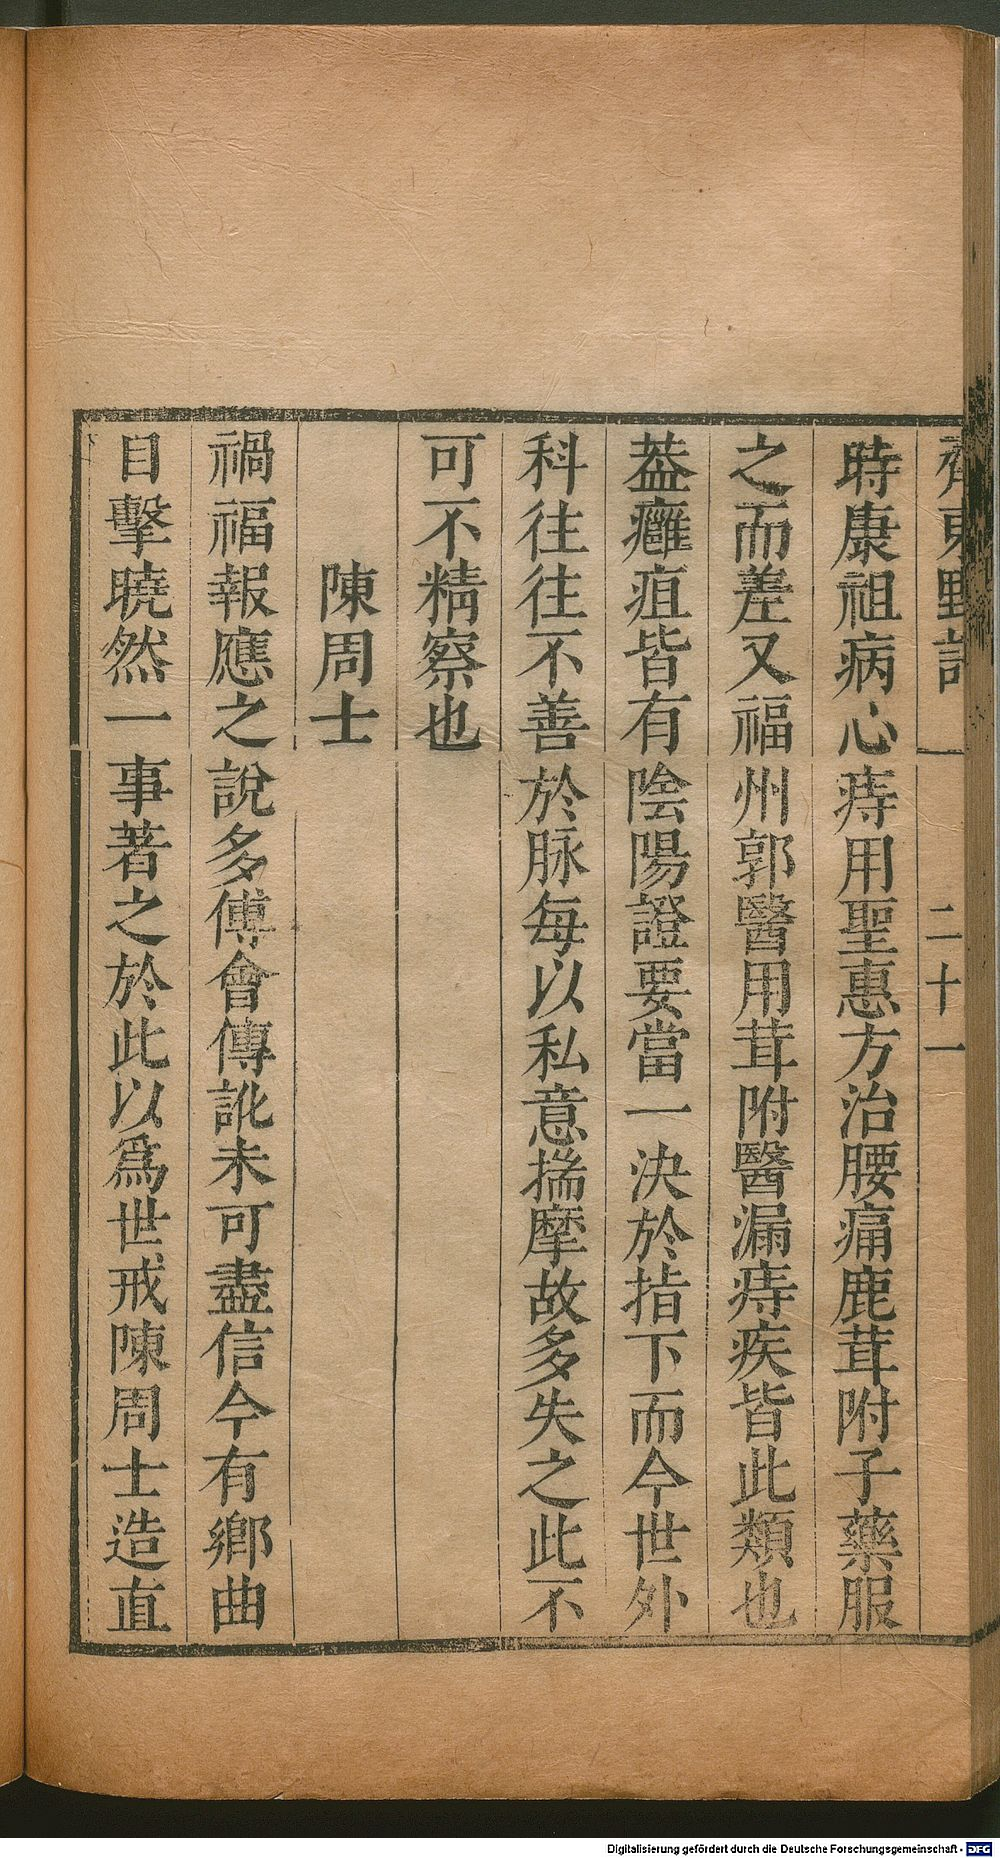 齊東野語
二十一
時康祖病心痔用聖惠方治腰痛鹿茸附子藥服
之而差又福州郭醫用茸附醫漏痔疾皆此類也
葢癰疽皆有陰陽證要當一決於指下而今世外
科往往不善於脉每以私意揣摩故多失之此不
可不精察也
陳周士
禍福報應之說多傅會傳訛未可盡信今有鄉曲
目擊曉然一事著之於此以爲世戒陳周士造直
Digitalisierung gefördert durch die Deutsche Forschungsgemeinschaft - DFG